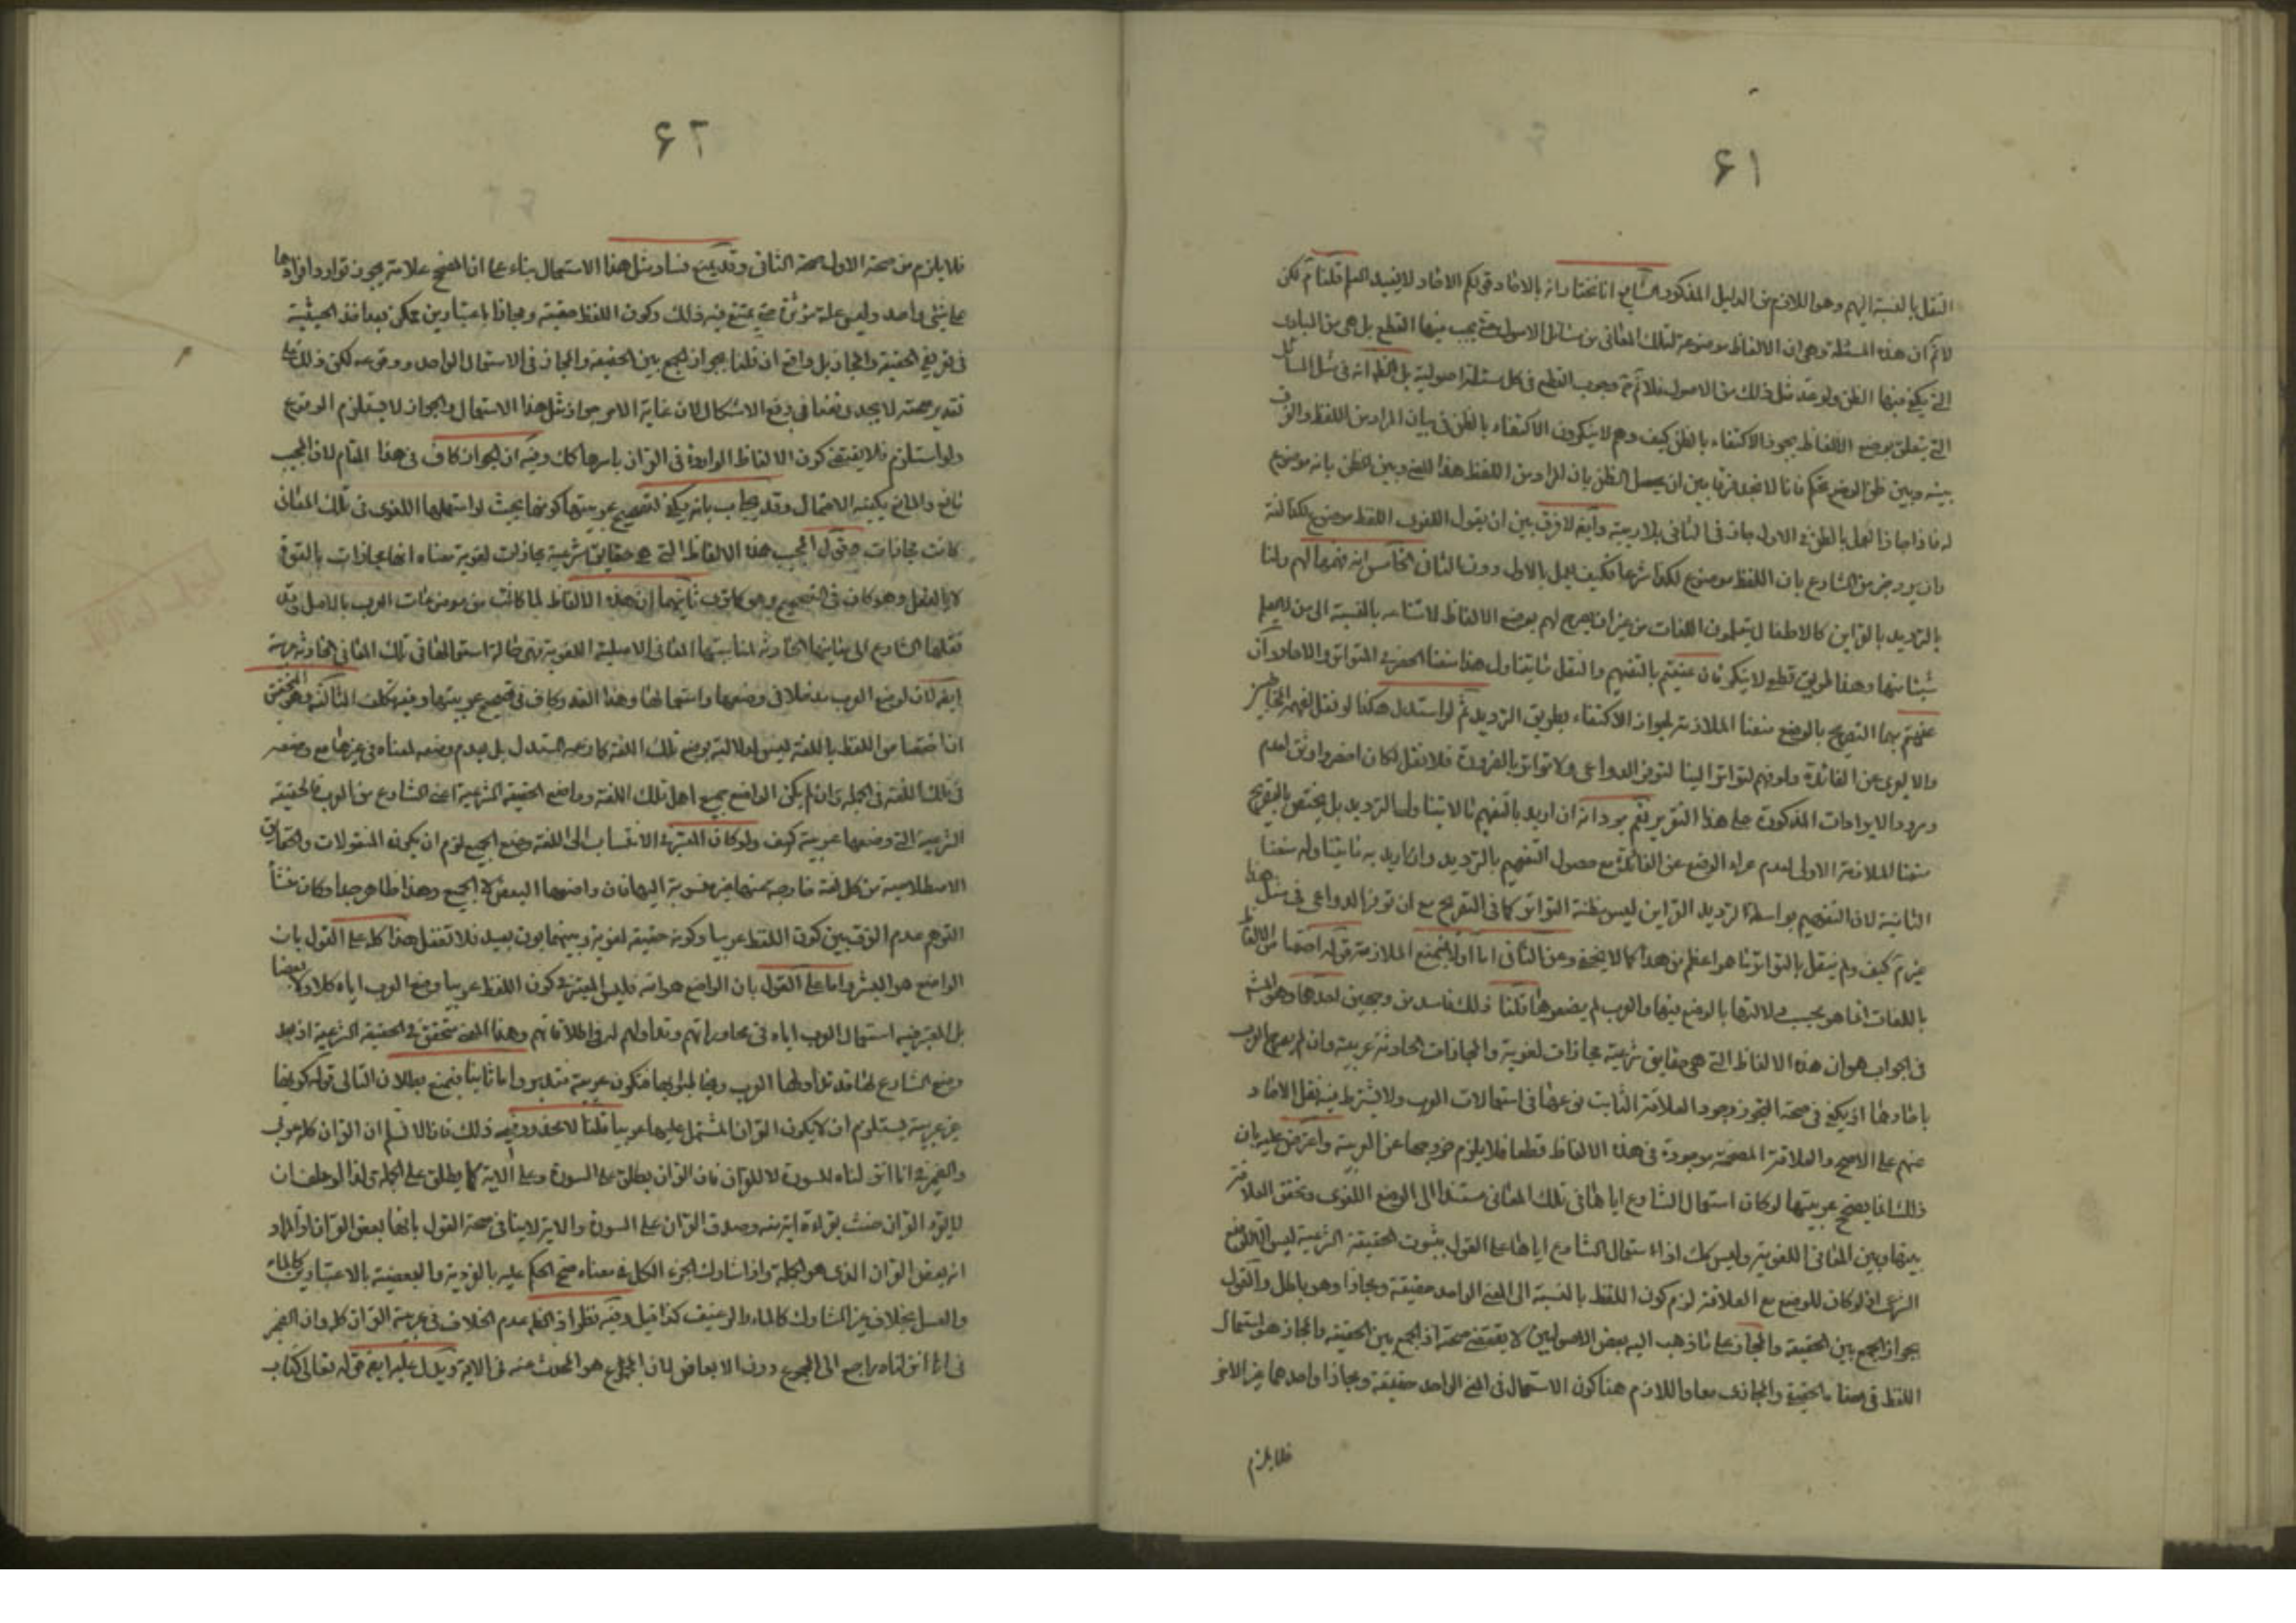 ۶۱
النقل بالنسبة اليهم وهو اللازم من الدليل المذكور الرابع انا نختار انه بالاحاد قولكم الاحاد لا يفيد العلم قلنا تم لكن
لا ثم ان هذه المسئلة وهي ان الالفاظ موضوعة لتلك المعاني من مسائل الاصول حتى يجب فيها القطع بل هي من المبادى
التى يكفى فيها الظن ولو عد مثل ذلك من الاصول فلا ثم وجوب القطع فى كل مسئلة اصولية بل الظ انه فى مثل المسائل
التى يتعلق بوضع الالفاظ يجوز الاكتفاء بالظن كيف وهم لا ينكرون الاكتفاء بالظن فى بيان المراد من اللفظ والفرق
بينه وبين ظن الوضع تحكم فانا لا نجد فرقا بين ان يحصل الظن بان المراد من اللفظ هذا المعنى وبين الظن بانه موضوع
له فاذا جاز العمل بالظن فى الاول جاز فى الثانى بلا ريبة وايضا لا فرق بين ان يقول اللغوى اللفظ موضوع لكذا لغة
وان يرد خبر من الشارع بان اللفظ موضوع لكذا شرعا فكيف يعمل بالاول دون الثانى الخامس انه فهمها لهم ولنا
بالترديد بالقراين كالاطفال يتعلمون اللغات من غير ان يصرح لهم بوضع الالفاظ لامتناعه بالنسبة الى من لا يعلم
شيئا منها وهذا طريق قطعى لا ينكر فان عنيتم بالتفهيم والنقل ما يتناول هذا منعنا الحصر فى التواتر والاحاد وان
عنيتم بهما التصريح بالوضع منعنا الملازمة لجواز الاكتفاء بطريق الترديد ثم لو استدل هكذا لو نقل لفهم المخاطبين
والا لعرى عن الفائدة ولو فهم لتواتر الينا لتوفر الدواعى ولا تواتر بالضرورة فلا نقل لكان اخصر واوثق لعدم
ورود الايرادات المذكورة على هذا التقرير نعم يرد انه ان اريد بالتفهيم ما لا يتناول الترديد بل يختص بالتصريح
منعنا الملازمة الاولى لعدم عراء الوضع عن الفائدة مع حصول التفهيم بالترديد وان اريد به ما يتناوله منعنا
الثانية لان التفهيم بواسطة الترديد القراين ليس مظنة التواتر كما فى التصريح مع ان توفر الدواعى فى مثل هذا
غير ثم كيف ولم ينقل بالتواتر ما هو اعظم من هذا كما لا يخفى وعن الثانى اما اولا فبمنع الملازمة قوله اختصاص الالفاظ
باللغات انما هو بحسب دلالتها بالوضع فيها والعرب لم يضعوها قلنا ذلك فاسد من وجهين احدهما وهو المشهور
فى الجواب هو ان هذه الالفاظ التى هى حقايق شرعية مجازات لغوية والمجازات الحادثة عربية وان لم يصرح العرب
باحادها اذ يكفى فى صحة التجوز وجود العلاقة الثابت نوعها فى استعمالات العرب ولا يشترط فيه نقل الاحاد
عنهم على الاصح والعلاقة المصححة موجودة فى هذه الالفاظ قطعا فلا يلزم خروجها عن العربية واعترض عليه بان
ذلك انما يصحح عربيتها لو كان استعمال الشارع اياها فى تلك المعانى مستندا الى الوضع اللغوى وتحقق العلاقة
بينها وبين المعانى اللغوية وليس كك اذ استعمال الشارع اياها على القول بثبوت الحقيقة الشرعية ليس الا للوضع
الشرعى اذ لو كان للوضع مع العلاقة لزم كون اللفظ بالنسبة الى المعنى الواحد حقيقة ومجازا وهو باطل والقول
بجواز الجمع بين الحقيقة والمجاز على ما ذهب اليه بعض الاصوليين لا يقتضى صحة اذ الجمع بين الحقيقة والمجاز هو استعمال
اللفظ فى معناه الحقيقى والمجازى معا واللازم هنا كون الاستعمال فى المعنى الواحد حقيقة ومجازا واحدهما غير الاخر
فلا يلزم
۶۲
فلا يلزم من صحة الاول صحة الثانى وقد يمنع فساد مثل هذا الاستعمال بناء على ان المصحح علامة يجوز توارد افرادها
على شئ واحد وليس علة مؤثرة حتى يمتنع فيه ذلك وكون اللفظ حقيقة ومجازا باعتبارين ممكن بعد اخذ الحيثية
فى تعريفى الحقيقة والمجاز بل واقع ان قلنا بجواز الجمع بين الحقيقة والمجاز فى الاستعمال الواحد ووقوعه لكن ذلك على
تقدير صحته لا يجدى نفعا فى دفع الاشكال لان غاية الامر جواز مثل هذا الاستعمال والجواز لا يستلزم الوقوع
ولو استلزم فلا يقتضى كون الالفاظ الواردة فى القران باسرها كك وفيه ان الجواز كاف فى هذا المقام لان المجيب
مانع والمانع يكفيه الاحتمال وقد يجاب بانه يكفى لتصحيح عربيتها كونها بحيث لو استعملها اللغوى فى تلك المعانى
كانت مجازات فقول المجيب هذه الالفاظ التى هى حقايق شرعية مجازات لغوية معناه انها مجازات بالقوة
لا بالفعل وهو كاف فى التصحيح وهو كما ترى ثانيهما ان هذه الالفاظ لما كانت من موضوعات العرب بالاصل وقد
نقلها الشارع الى معانيها الحادثة لمناسبتها المعانى الاصلية اللغوية فهى حالة استعمالها فى تلك المعانى الحادثة عربية
ايضا لان لوضع العرب مدخلا فى وضعها واستعمالها وهذا القدر كاف فى تصحيح عربيتها وفيه تكلف الثالث وهو التحقيق
ان اختصاص اللفظ باللغة ليس لدلالته بوضع تلك اللغة كما زعمه المستدل بل لعدم وضعه لمعناه فى غيرها مع وضعه
فى تلك اللغة فى الجملة وان لم يكن الواضع جميع اهل تلك اللغة وواضع الحقيقة الشرعية اعنى الشارع من العرب فالحقيقة
الشرعية التى وضعها عربية كيف ولو كان المعتبر فى الانتساب الى اللغة وضع الجميع لزم ان يكون المنقولات والحقايق
الاصطلاحية من كل لغة خارجة عنها غير منسوبة اليها فان واضعها البعض لا الجميع وهذا ظاهر جدا وكان منشأ
التوهم عدم الفرق بين كون اللفظ عربيا وكونه حقيقة لغوية وبينهما بون بعيد فلا تغفل هذا كله على القول بان
الواضع هو البشر واما على القول بان الواضع هو الله فليس المعتبر فى كون اللفظ عربيا وضع العرب اياه كلا ولا بعضا
بل المعتبر فيه استعمال العرب اياه فى محاوراتهم وتداولهم له فى اطلاقاتهم وهذا المعنى متحقق فى الحقيقة الشرعية اذ بعد
وضع الشارع لها قد تداولها العرب وتخاطبوا بها فتكون عربية فتدبر واما ثانيا فبمنع بطلان التالى قوله كونها
غير عربية يستلزم ان لا يكون القران المشتمل عليها عربيا قلنا لا محذور فيه ذلك فانا لا نسلم ان القران كله عربى
والضمير فى انا انزلناه للسورة لا للقران فان القران يطلق على السورة وعلى الاية كما يطلق على الجملة ولذا لو حلف ان
لا يقرء القران حنث بقراءة اية منه وصدق القران على السورة والاية لا ينافى صحة القول بانها بعض القران اذ المراد
انه بعض القران الذى هو الجملة واذا شارك الجزء الكل فى معناه صح الحكم عليه بالفردية والبعضية بالاعتبارين كالماء
والعسل بخلاف غير المشارك كالماء والرغيف كذا قيل وفيه نظر اذ الظ عدم الخلاف فى عربية القران كله وان الضمير
فى انا انزلناه راجع الى المجموع دون الابعاض لان المجموع هو المحدث عنه فى الاية ويدل عليه ايضا قوله تعالى كتاب